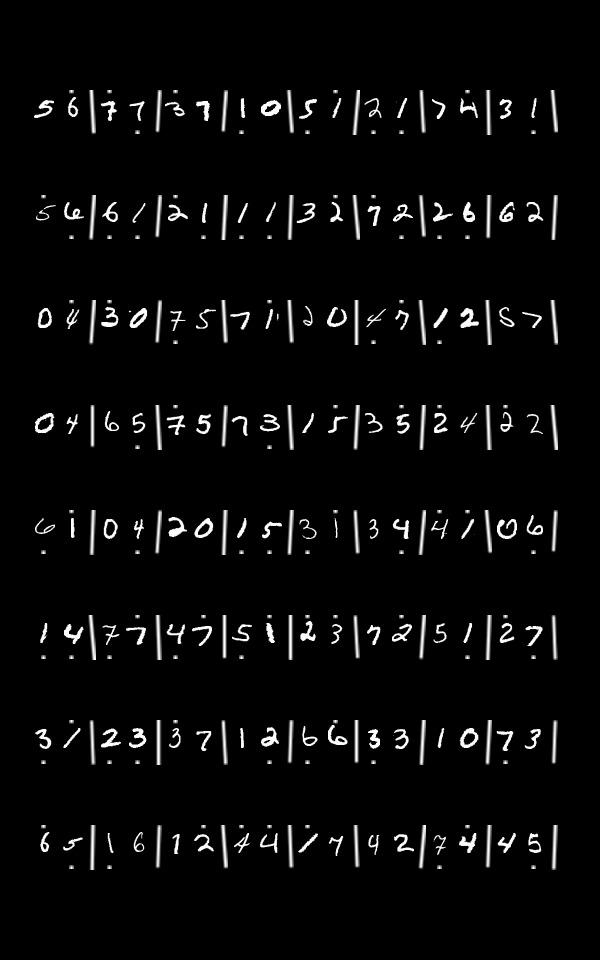 5 6 | 7 7 | 3 7 | 1 0 | 5 1 | 2 1 | 7 4 | 3 1 |
5 6 | 6 1 | 2 1 | 1 1 | 3 2 | 7 2 | 2 6 | 6 2 |
0 4 | 3 0 | 7 5 | 7 1 | 2 0 | 4 7 | 1 2 | 5 7 |
0 4 | 6 5 | 7 5 | 7 3 | 1 5 | 3 5 | 2 4 | 2 2 |
6 1 | 0 4 | 2 0 | 1 5 | 3 1 | 3 4 | 4 1 | 0 6 |
1 4 | 7 7 | 4 7 | 5 1 | 2 3 | 7 2 | 5 1 | 2 7 |
3 1 | 2 3 | 3 7 | 1 2 | 6 6 | 3 3 | 1 0 | 7 3 |
6 5 | 1 6 | 1 2 | 4 4 | 1 7 | 4 2 | 7 4 | 4 5 |